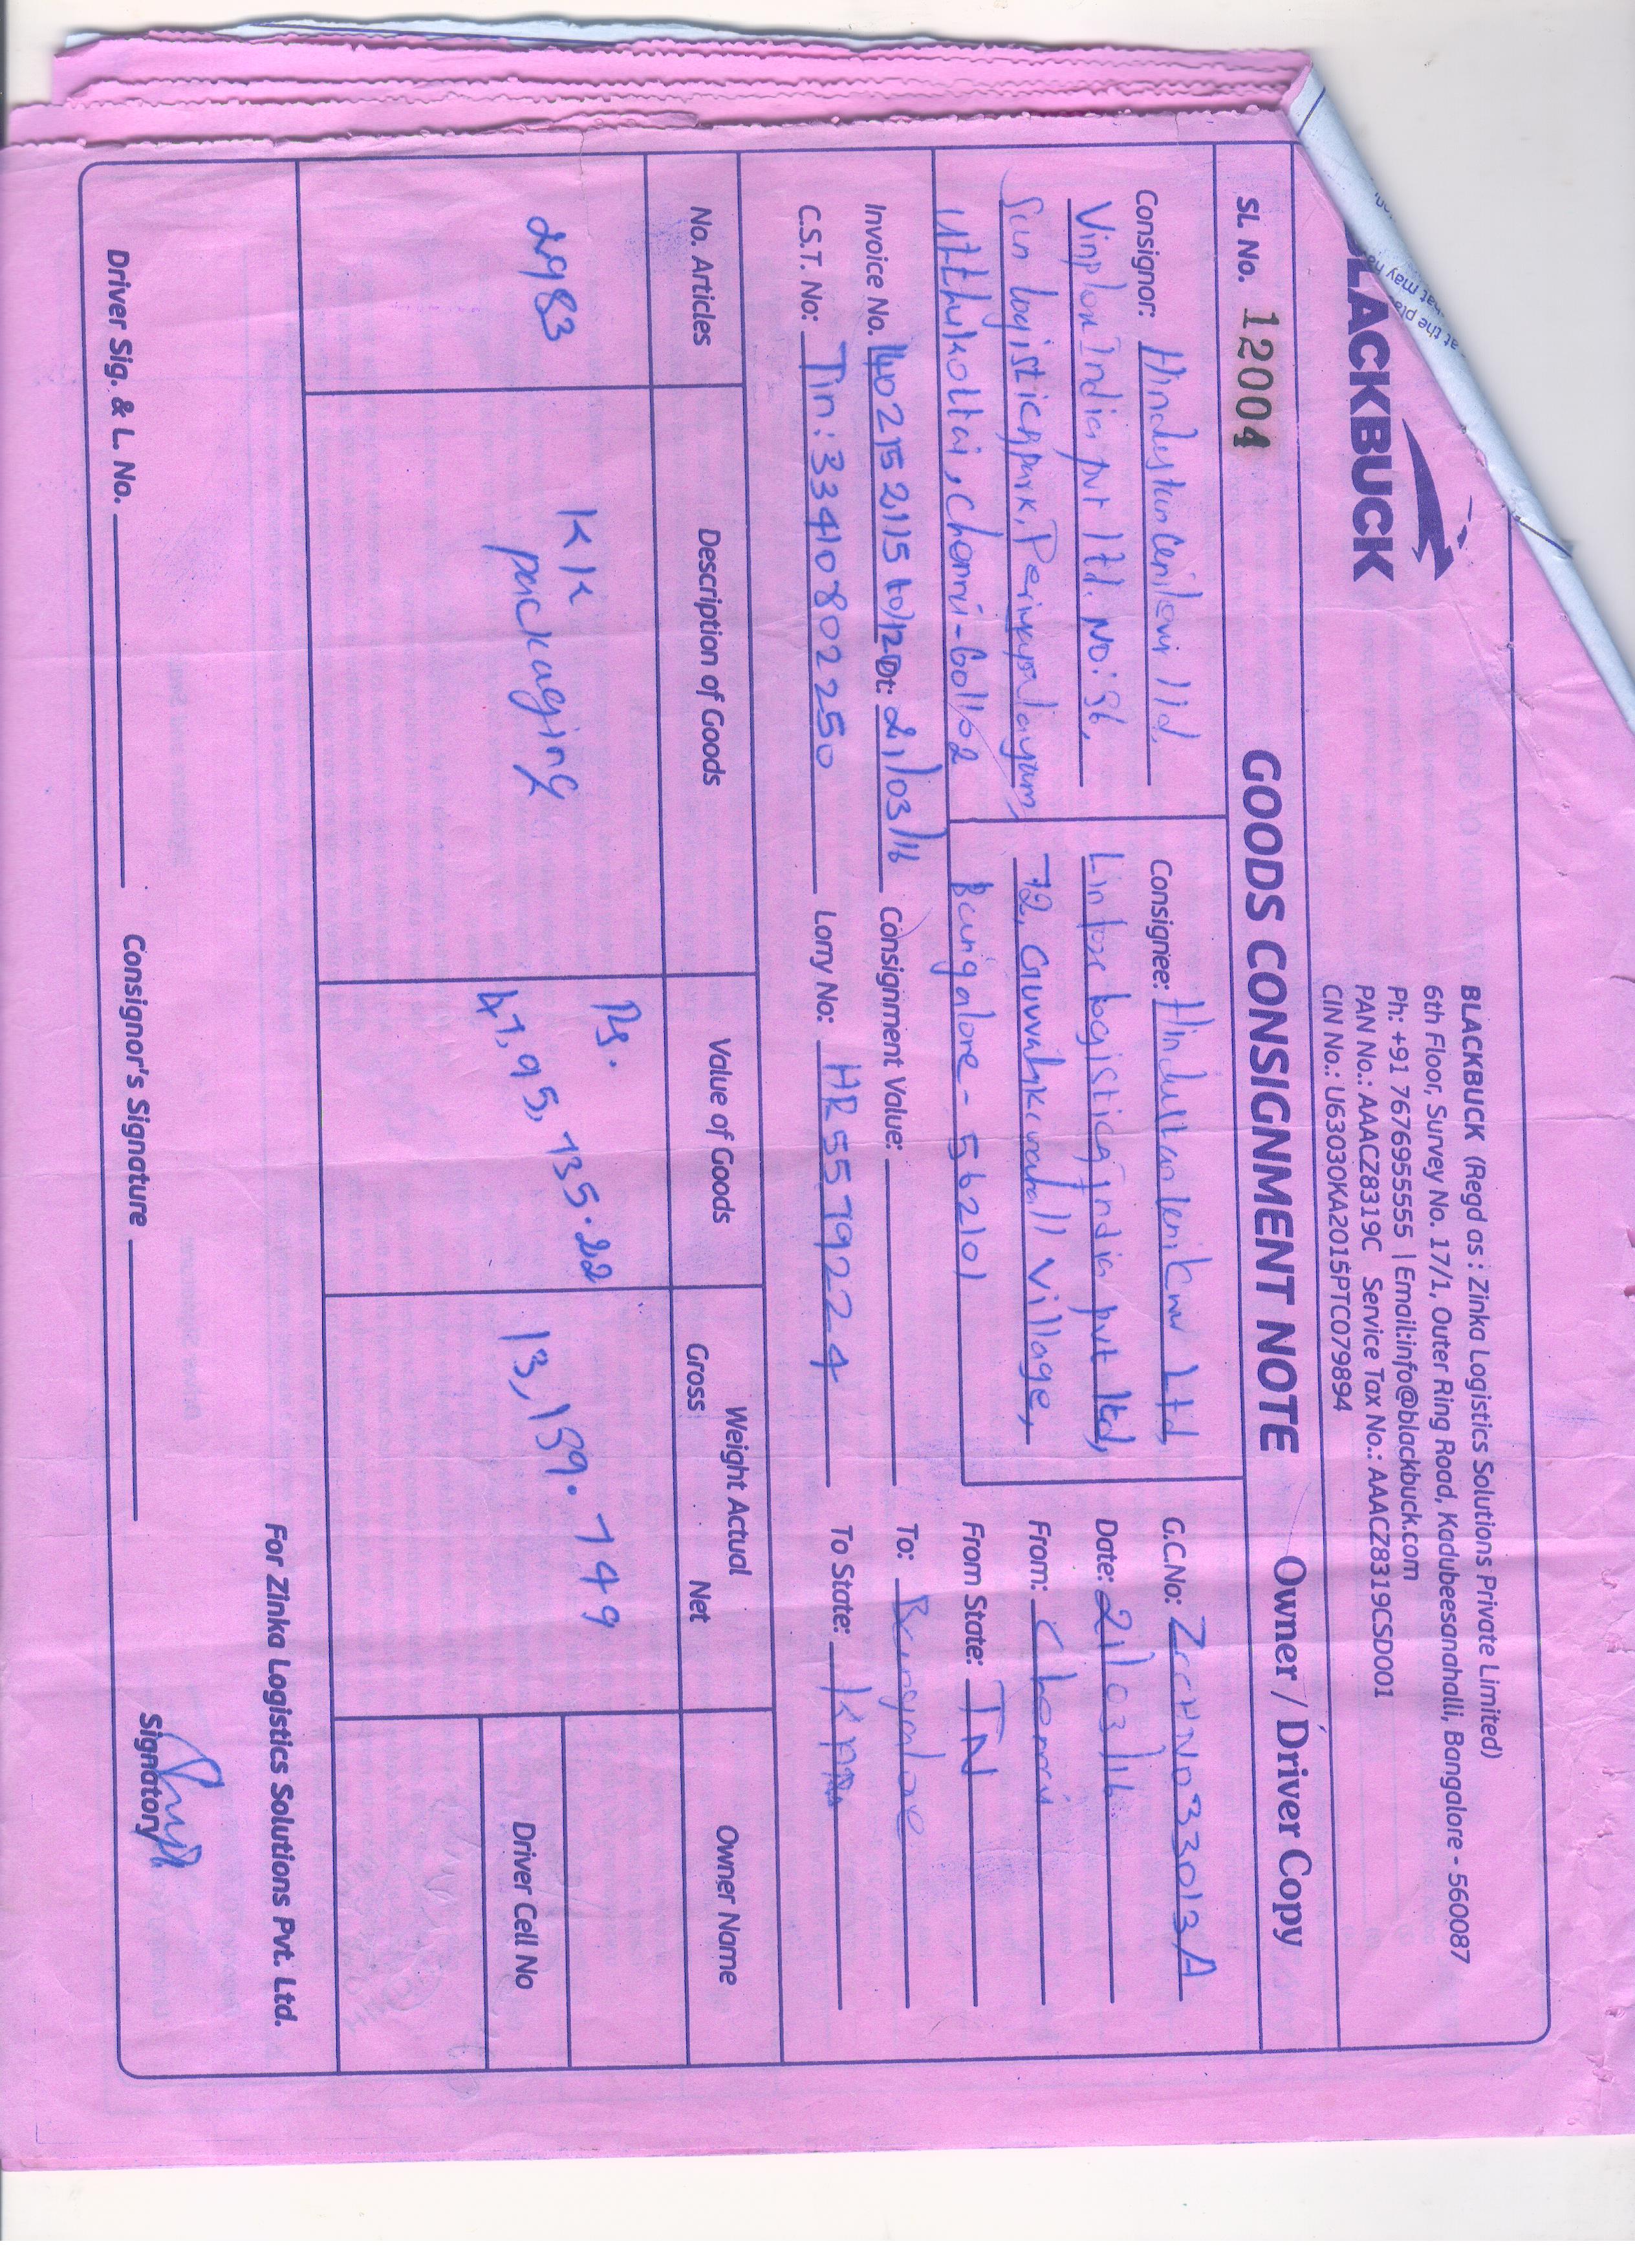 at the pla
hat may ha
on.
BLACKBUCK
BLACKBUCK (Regd as : Zinka Logistics Solutions Private Limited)
6th Floor, Survey No. 17/1, Outer Ring Road, Kadubeesanahalli, Bangalore - 560087
Ph: +91 7676955555 | Email:info@blackbuck.com
PAN No.: AAACZ8319C Service Tax No.: AAACZ8319CSD001
CIN No.: U63030KA2015PTC079894
SL No. 12004 GOODS CONSIGNMENT NOTE Owner / Driver Copy
Consignor: Hindustan ltd.
Vinplex India pvt ltd. No: 36,
Sun logistics park, Periyapalayam,
Utthukottai, Chennai-601102
Consignee: Hindustan Ltd
Linfox logistics india pvt ltd,
72, Village,
Bangalore - 562101
G.C.No: ZCCHN033013A
Date: 21/03/16
From: Chennai
From State: TN
To: Bangalore
To State: KAR
Invoice No. 1402152115 to/120 Dt: 21/03/16 Consignment Value:
C.S.T. No: Tin: 33410802250 Lorry No: HR55T9224
No. Articles Description of Goods Value of Goods Weight Actual Gross Net Owner Name
2983 KK packaging Rs. 47,95,735.22 13,159.749
Driver Cell No
For Zinka Logistics Solutions Pvt. Ltd.
Driver Sig. & L. No. Consignor's Signature Signatory